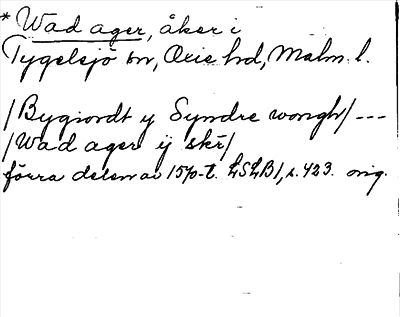 * Wad ager, åker i
Tygelsjö sn, Oxie hd, Malm. l.
/Bygiordt y Syndre wongh/ ---
/Wad ager ij skr/
förra delen av 1570-t. LSLB1, s. 423. orig.